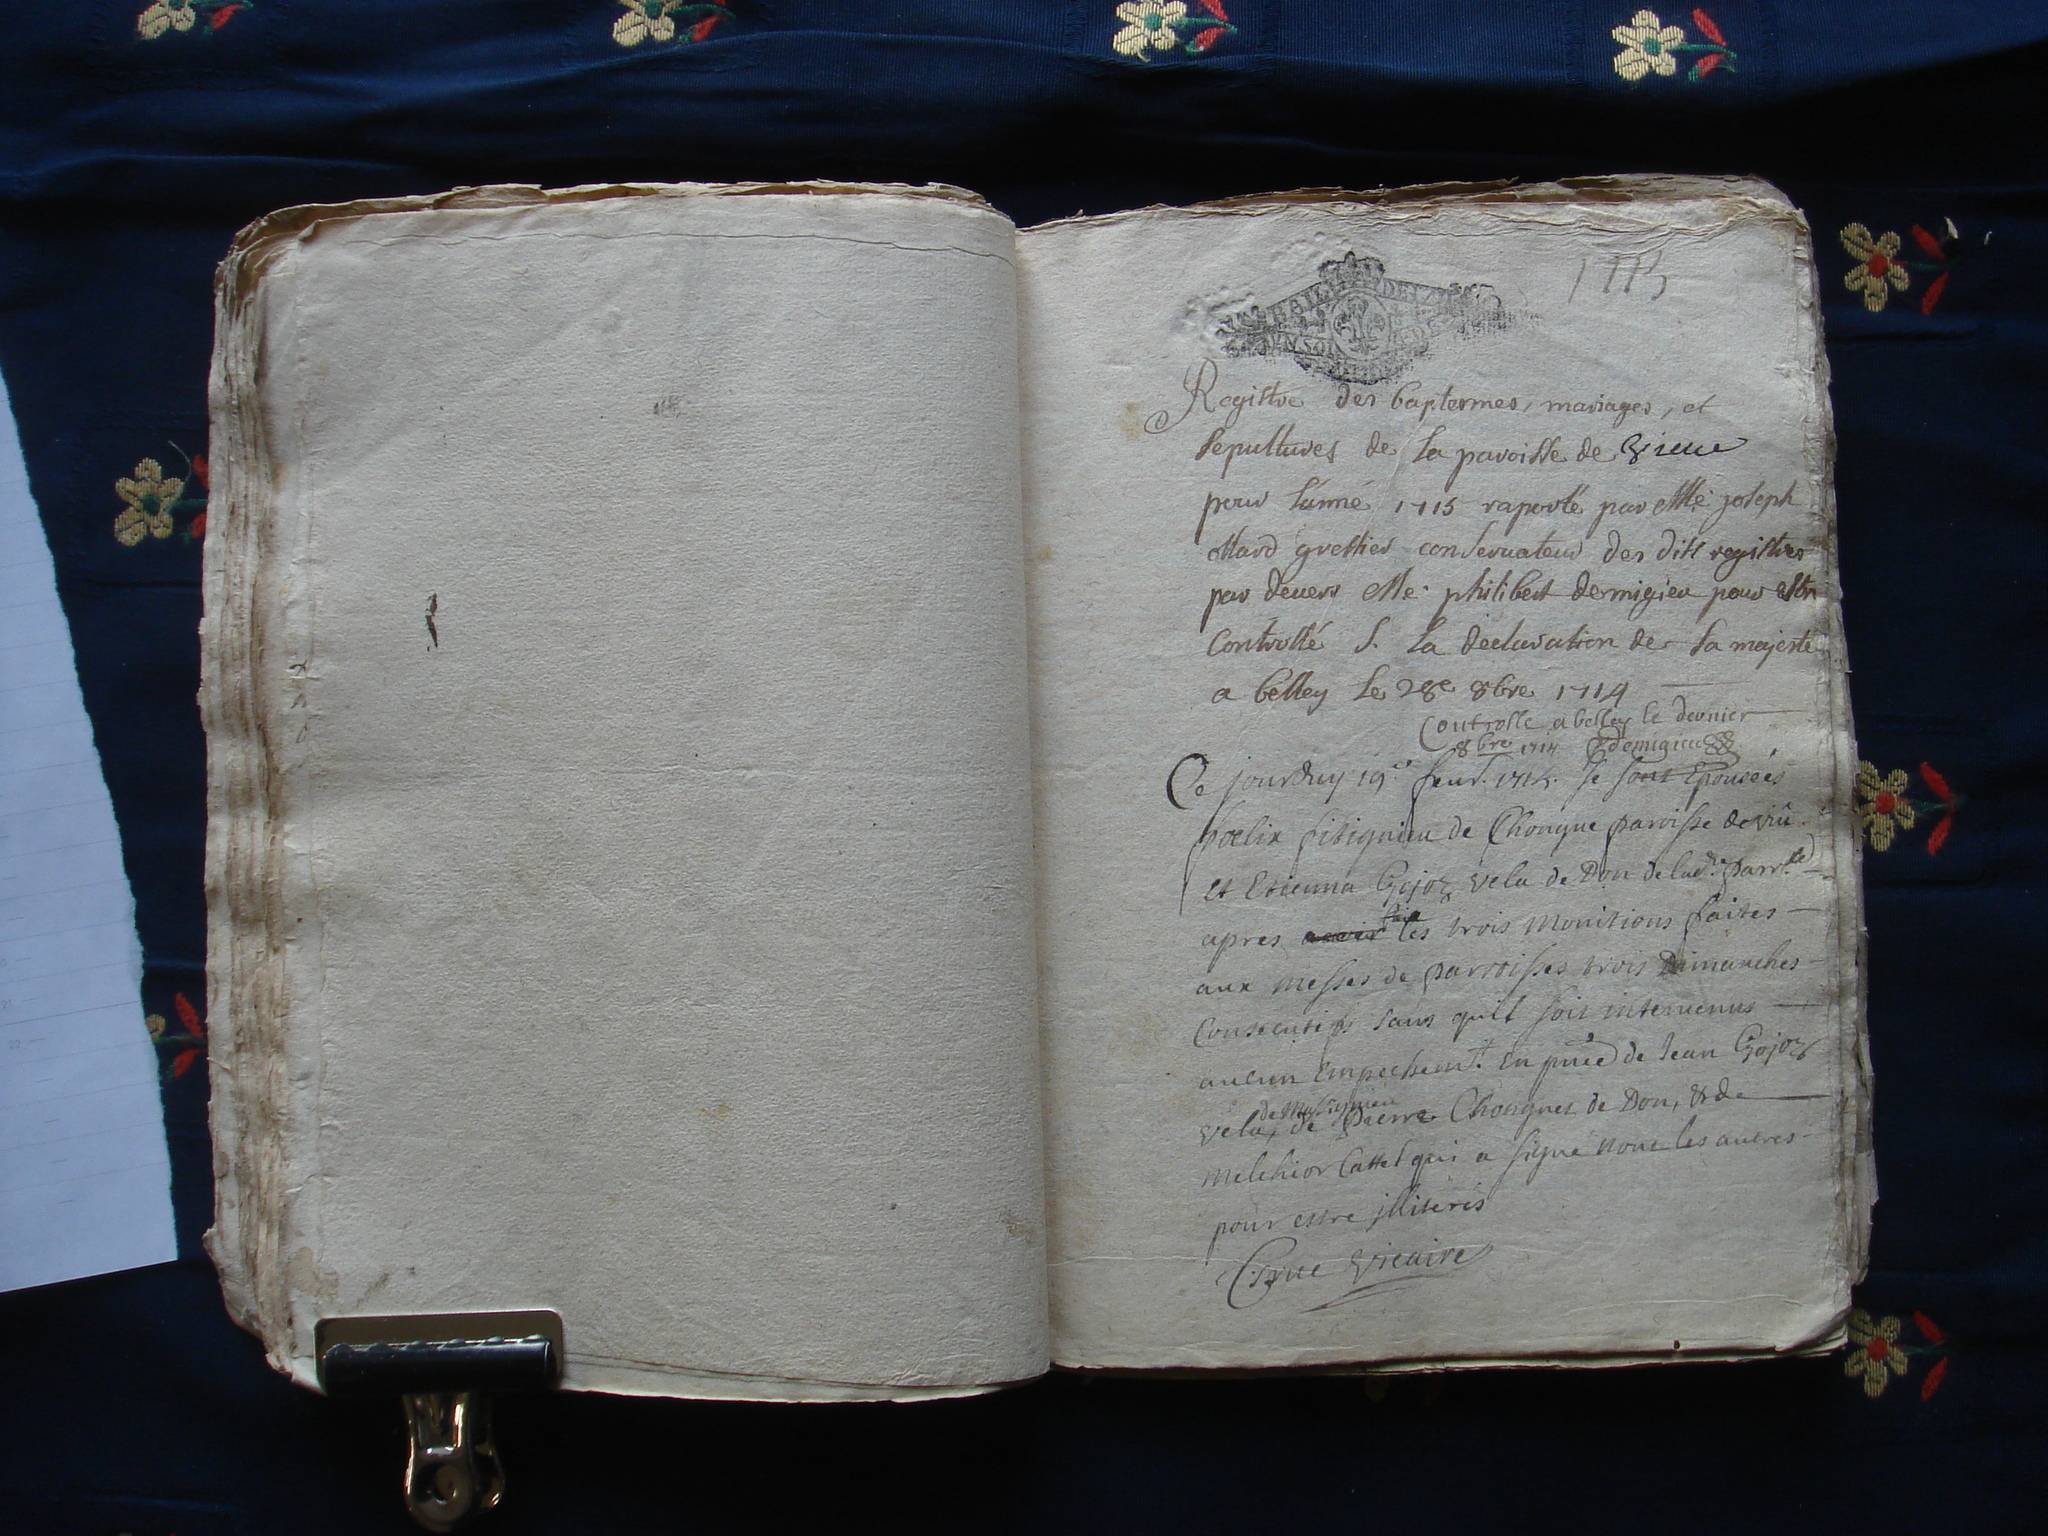 1715
Registre des baptesmes, mariages, et
sepultures de la paroisse de Vieue
pour l'anné 1715 raporté par Me joseph
Mard greffier conservateur des dits registres
par devers Me philibert demigieu pour estre
Controllé S. la declaration de sa majesté
a belley le 28e 8bre 1714
Controlle a belley le dernier
8bre 1714 demigieu
Ce jourduy 19e feur. 1715. se sont Epousées
foelix fitignieu de Chongne paroisse de viû
et Etienna Gojoz vela de Don de lad. parr.
apres les trois monitions faites
aux messes de parroisses trois Dimanches
Consecutifs sans qu'il soit intervenus
aucun Empechemt. En pnce de Jean Gojoz
de Massignieu
vela, de pierre Chongnet de Don, & de
melchior Cattet qui a signé none les autres
pour estre illiterés
vicaire